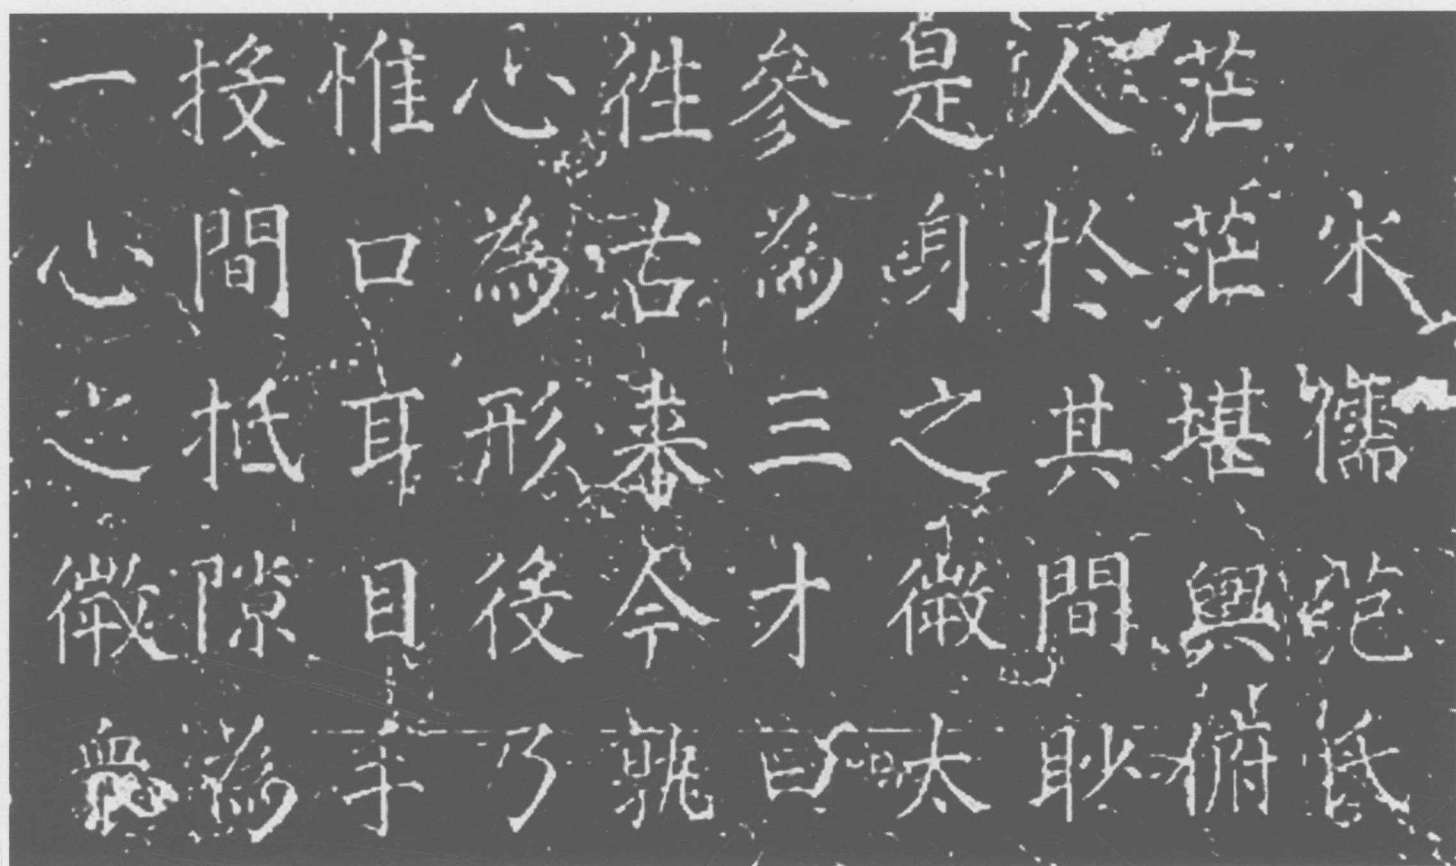 宋儒范氏
茫茫堪輿俯
人於其間眇
是身之微太
參為三才曰
徃古來今孰
心為形役乃
惟口耳目手
投間抵隙為
一心之微眾